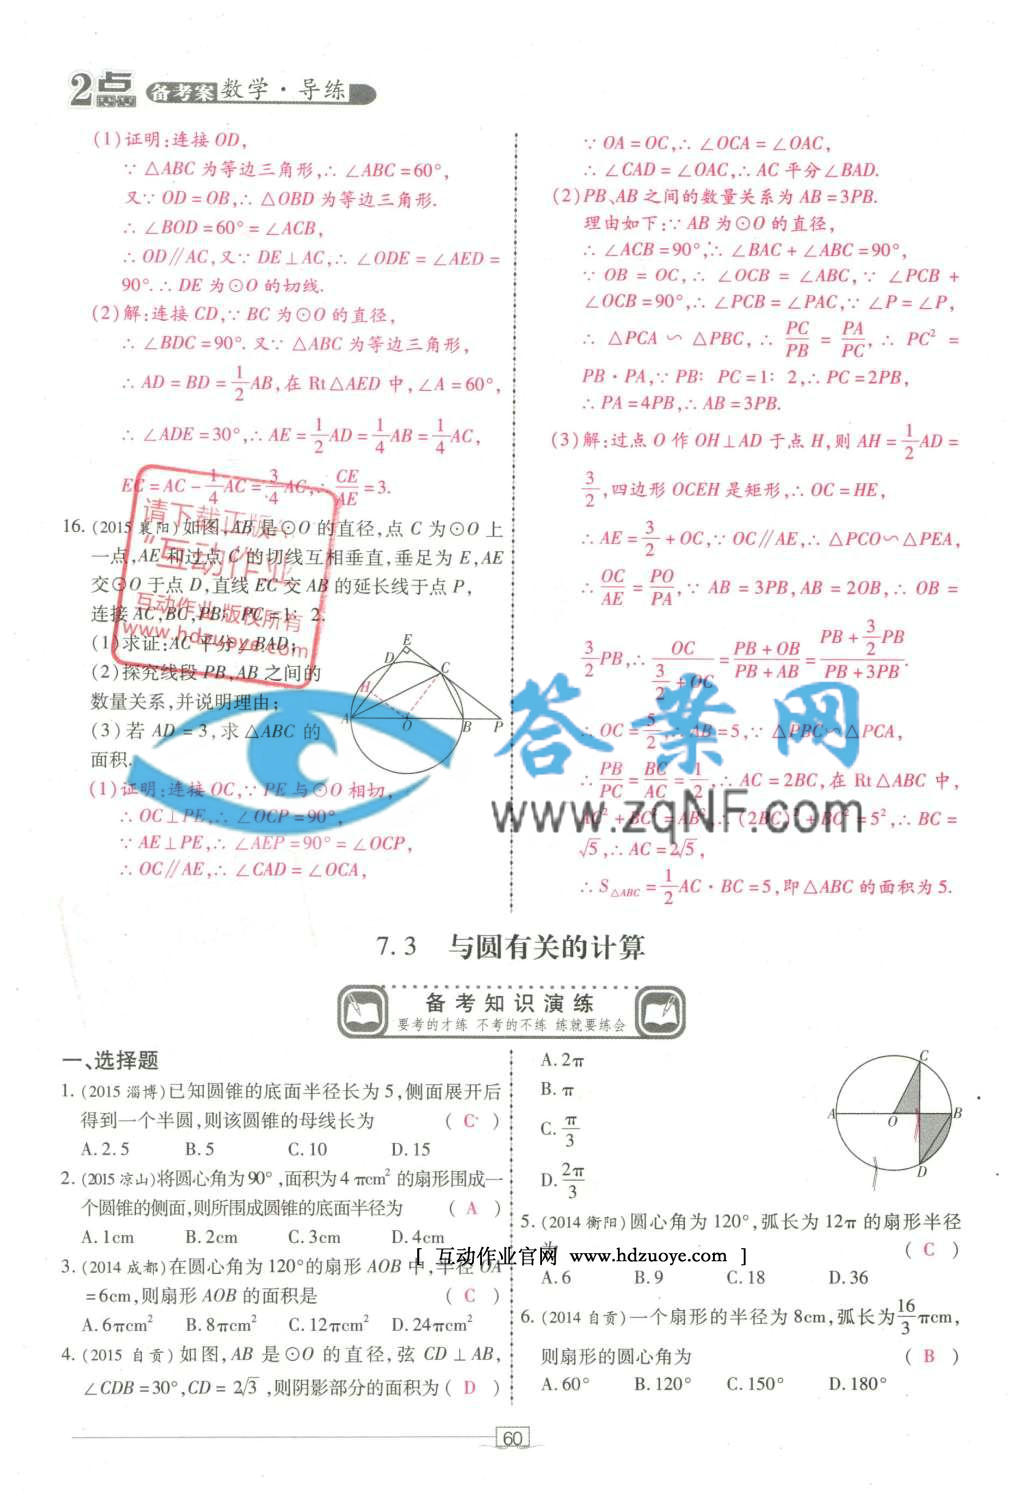 2点 备考案 数学·导练
(1)证明:连接 OD,
∵ △ABC 为等边三角形,∴ ∠ABC=60°,
又∵ OD=OB,∴ △OBD 为等边三角形.
∴ ∠BOD=60°=∠ACB,
∴ OD∥AC,又∵ DE⊥AC,∴ ∠ODE=∠AED=
90°.∴ DE 为⊙O 的切线.
(2)解:连接 CD,∵ BC 为⊙O 的直径,
∴ ∠BDC=90°. 又∵ △ABC 为等边三角形,
∴ AD=BD=1/2AB,在 Rt△AED 中,∠A=60°,
∴ ∠ADE=30°,∴ AE=1/2AD=1/4AB=1/4AC,
EC=AC-1/4AC=3/4AC,∴ CE/AE=3.
16. (2015 襄阳)如图,AB 是⊙O 的直径,点 C 为⊙O 上
一点,AE 和过点 C 的切线互相垂直,垂足为 E,AE
交⊙O 于点 D,直线 EC 交 AB 的延长线于点 P,
连接 AC,BC,PB∶PC=1∶2.
(1)求证:AC 平分∠BAD;
(2)探究线段 PB,AB 之间的
数量关系,并说明理由;
(3)若 AD=3,求△ABC 的
面积.
E
D
C
H
A
O
B
P
(1)证明:连接 OC,∵ PE 与⊙O 相切,
∴ OC⊥PE,∴ ∠OCP=90°,
∵ AE⊥PE,∴ ∠AEP=90°=∠OCP,
∴ OC∥AE,∴ ∠CAD=∠OCA,
∵ OA=OC,∴ ∠OCA=∠OAC,
∴ ∠CAD=∠OAC,∴ AC 平分∠BAD.
(2)PB、AB 之间的数量关系为 AB=3PB.
理由如下:∵ AB 为⊙O 的直径,
∴ ∠ACB=90°,∴ ∠BAC+∠ABC=90°,
∵ OB=OC,∴ ∠OCB=∠ABC,∵ ∠PCB+
∠OCB=90°,∴ ∠PCB=∠PAC,∵ ∠P=∠P,
∴ △PCA∽△PBC,∴ PC/PB=PA/PC,∴ PC²=
PB·PA,∵ PB∶PC=1∶2,∴ PC=2PB,
∴ PA=4PB,∴ AB=3PB.
(3)解:过点 O 作 OH⊥AD 于点 H,则 AH=1/2AD=
3/2,四边形 OCEH 是矩形,∴ OC=HE,
∴ AE=3/2+OC,∵ OC∥AE,∴ △PCO∽△PEA,
∴ OC/AE=PO/PA,∵ AB=3PB,AB=2OB,∴ OB=
3/2PB,∴ OC/(3/2+OC)=(PB+OB)/(PB+AB)=(PB+3/2PB)/(PB+3PB).
∴ OC=5/2,∴ AB=5,∵ △PBC∽△PCA,
∴ PB/PC=BC/AC=1/2,∴ AC=2BC,在 Rt△ABC 中,
AC²+BC²=AB²,∴ (2BC)²+BC²=5²,∴ BC=
√5,∴ AC=2√5,
∴ S△ABC=1/2AC·BC=5,即△ABC 的面积为5.
请下载正版《
"互动作业
互动作业版权所有
www.hdzuoye.com
答案网
www.zqNF.com
7.3 与圆有关的计算
备考知识演练
要考的才练 不考的不练 练就要练会
一、选择题
1. (2015 淄博)已知圆锥的底面半径长为 5,侧面展开后
得到一个半圆,则该圆锥的母线长为 ( C )
A. 2.5 B. 5 C. 10 D. 15
2. (2015 凉山)将圆心角为90°,面积为4 πcm²的扇形围成一
个圆锥的侧面,则所围成圆锥的底面半径为 ( A )
A. 1cm B. 2cm C. 3cm D. 4cm
3. (2014 成都)在圆心角为120°的扇形 AOB 中,半径 OA
=6cm,则扇形 AOB 的面积是 ( C )
A. 6πcm² B. 8πcm² C. 12πcm² D. 24πcm²
4. (2015 自贡)如图,AB 是⊙O 的直径,弦 CD⊥AB,
∠CDB=30°,CD=2√3,则阴影部分的面积为 ( D )
A. 2π
B. π
C. π/3
D. 2π/3
C
A
O
B
D
5. (2014 衡阳)圆心角为 120°,弧长为 12π 的扇形半径
为 ( C )
A. 6 B. 9 C. 18 D. 36
[ 互动作业官网 www.hdzuoye.com ]
6. (2014 自贡)一个扇形的半径为 8cm,弧长为16/3πcm,
则扇形的圆心角为 ( B )
A. 60° B. 120° C. 150° D. 180°
60